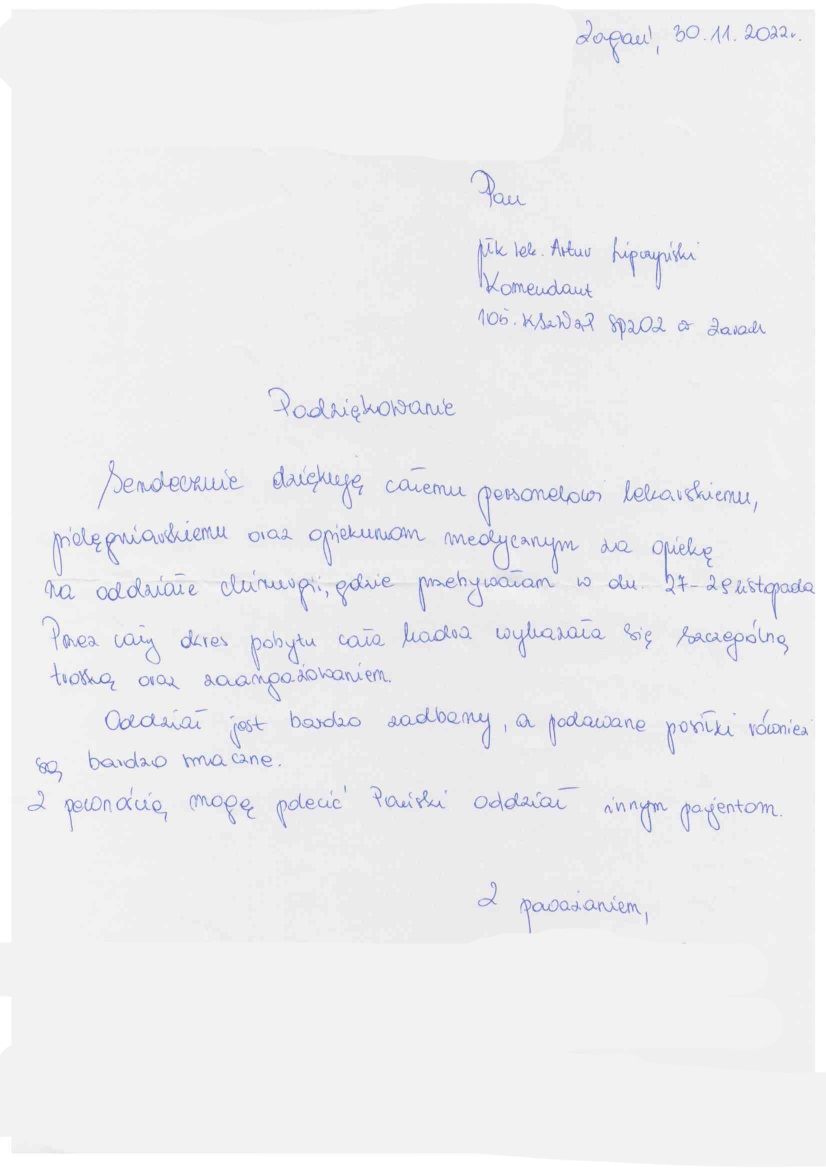 Żagań, 30.11.2022r.
Pan
płk lek. Artur Lipczyński
Komendant
105. KSzWzP SPZOZ w Żarach
Podziękowanie
Serdecznie dziękuję całemu personelowi lekarskiemu,
pielęgniarskiemu oraz opiekunom medycznym za opiekę
na oddziale chirurgii, gdzie przebywałam w dn. 27-29 listopada
Przez cały okres pobytu cała kadra wykazała się szczególną
troską oraz zaangażowaniem.
Oddział jest bardzo zadbany, a podawane posiłki również
są bardzo smaczne.
Z pewnością mogę polecić Pański oddział innym pacjentom.
Z poważaniem,